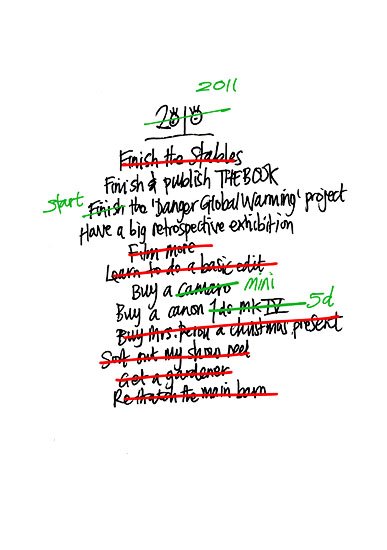 2011
2010
Finish the Stables
Finish & publish THE BOOK
start Finish the 'Danger Global Warming' project
Have a big retrospective exhibition
Film more
Learn to do a basic edit
Buy a camaro mini
Buy a canon 1ds mk IV 5d
Buy Mrs. a christmas present
Sort out my show reel
Get a gardener
Rethatch the main barn